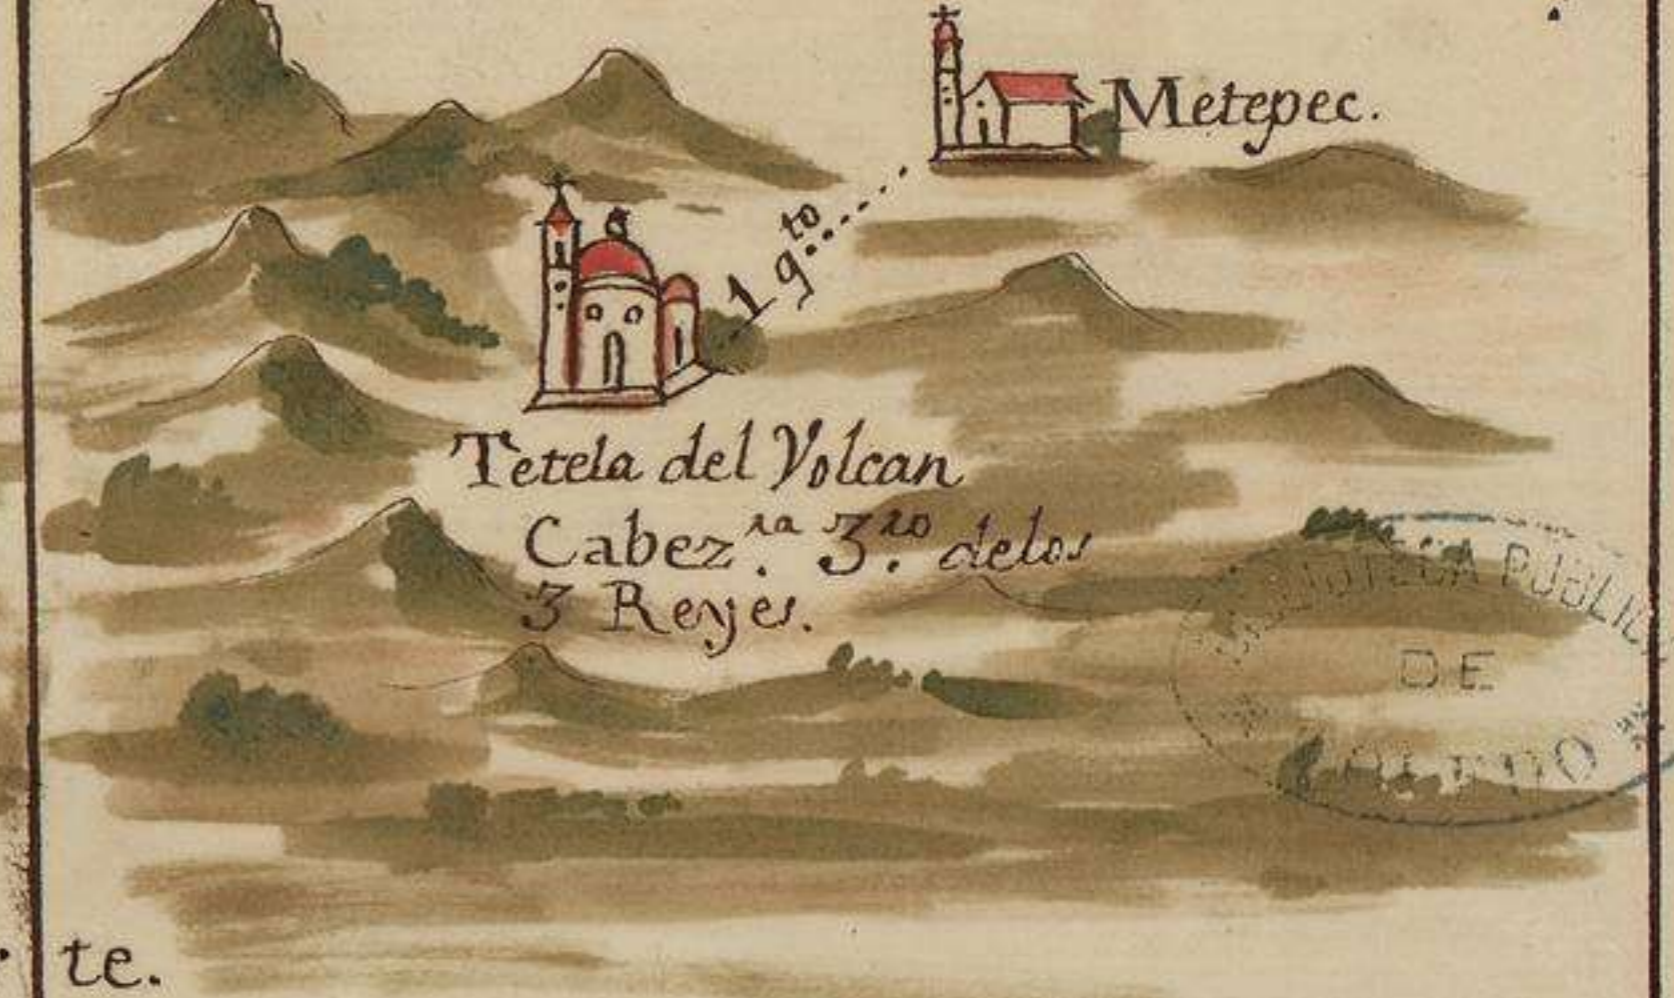 Metepec.
1 q.to
Tetela del Volcan
Cabez.ra 3.ro delos
3 Reyes.
BIBLIOTECA PUBLICA
DE
TOLEDO
te.